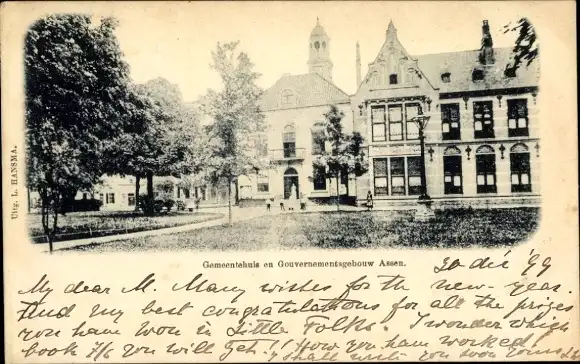 Uitg. L. HANSMA.
Gemeentehuis en Gouvernementsgebouw Assen.
30 déc '99
My dear M. Many wishes for the new-year.
And my best congratulations for all the prizes
you have won in Little Folks. I wonder which
book 7/6 you will get! How you have worked!
I shall write you soon